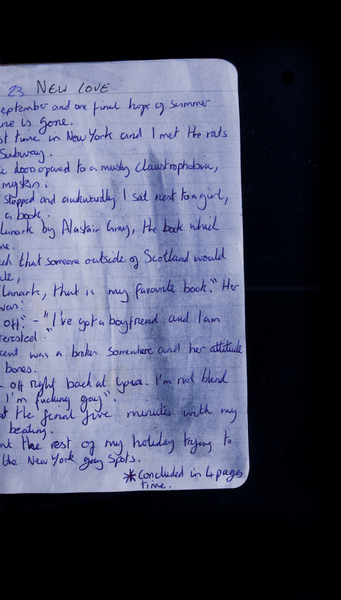 23 NEW LOVE
eptember and one final hope of summer
is gone.
st time in New York and I met the rats
Subway.
e doors opened to a musty claustrophobia,
my skin.
stopped and awkwardly I sat next to a girl,
a book.
Lanark by Alastair Gray, the book which
me.
that someone outside of Scotland would
"Lanark, that is my favourite book." Her
was:
off." - "I've got a boyfriend and I am
terested."
cent was a broken somewhere and her attitude
bones.
- off right back at you. I'm not blind
I'm fucking gay".
the final five minutes with my
beating.
nt the rest of my holiday trying to
the New York gay spots.
*Concluded in 4 pages
time.